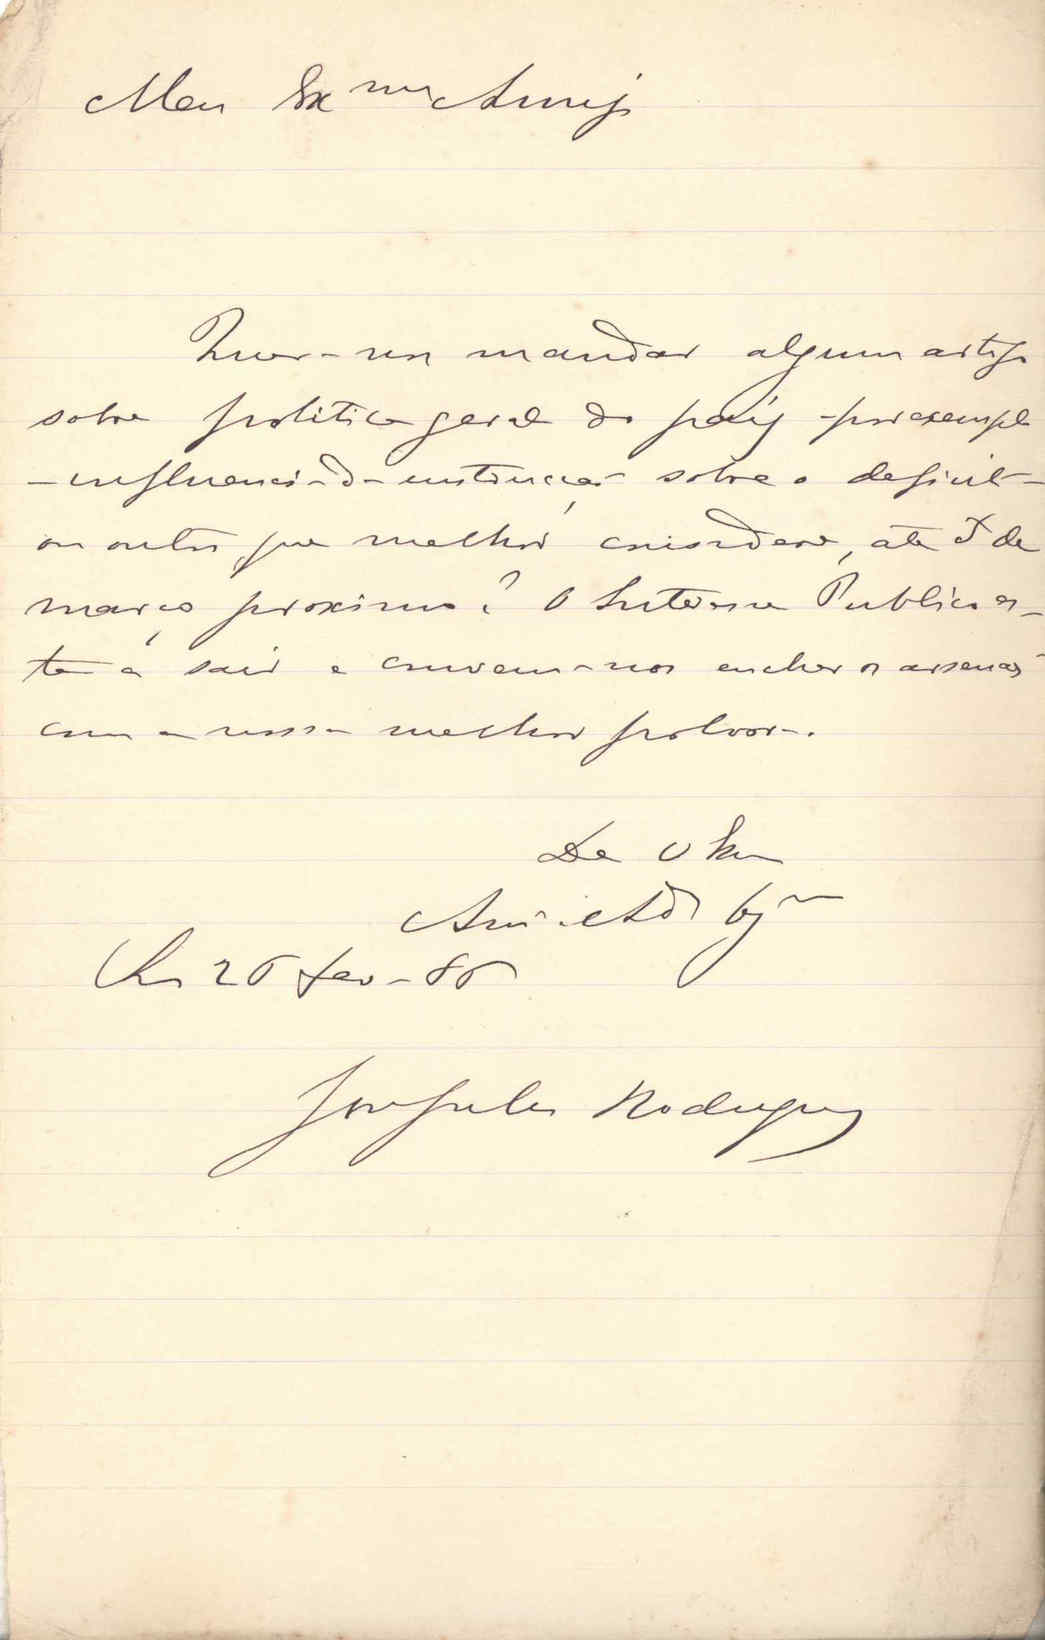 Meu Ex mo Amigo
Quer-nos mandar algum artigo
sobre politica geral do paiz - por exemplo
- influencia da instrucção sobre o deficit -
ou outro que melhor considere, até 5 de
março proximo? O Interesse Publico es-
tá a sair e convem-nos encher os arsenaes
com a nossa melhor polvora.
De V Ex
Am. e
Lx 26 fev - 86
Rodrigues